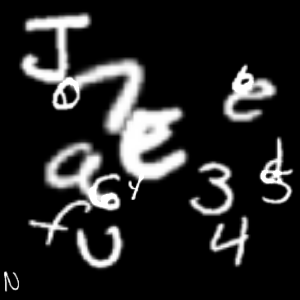 J
0 7 e 6
e
a 6 y 3 d 5
f U 4
N